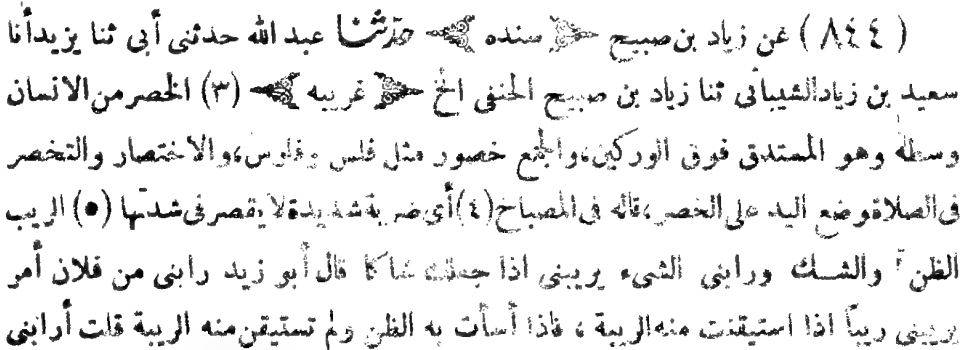 ( ٨٤٤ ) عن زياد بن صبيح ﴿ سنده ﴾ حدثنا عبد الله حدثنى أبى ثنا يزيد أنا
سعيد بن زياد الشيبانى ثنا زياد بن صبيح الحنفى الخ ﴿ غريبه ﴾ (٣) الخصر من الانسان
وسطه وهو المستدق فوق الوركين، والجمع خصور مثل فلس وفلوس، والاختصار والتخصر
فى الصلاة وضع اليد على الخصر، قاله فى المصباح (٤) أى ضربة شديدة لا يقصر فى شدتها (٥) الريب
الظن والشك ورابنى الشىء يريبنى اذا جعلك شاكا قال أبو زيد رابنى من فلان أمر
يريبنى ريبًا اذا استيقنت منه الريبة ، فاذا أسأت به الظن ولم تستيقن منه الريبة قلت أرابنى